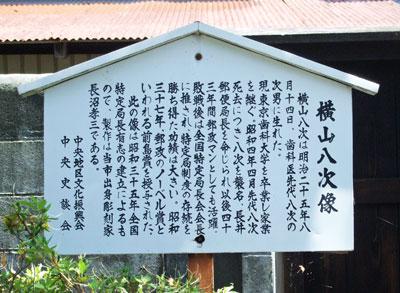 横山八次像
横山八次は明治二十五年八
月十四日、歯科医先代八次の
次男に生れた。
現東京歯科大学を卒業し家業
を継ぐ。昭和四年四月先代八次
死去につき八次を襲名、長井
郵便局長を命じられ以後四十
三年間郵政マンとしても活躍。
敗戦後は全国特定局長会会長
に推され、特定局制度の存続を
勝ち得た功績は大きい。昭和
三十七年、郵政のノーベル賞と
いわれる前島賞を授与された。
此の像は昭和三十五年全国
特定局長有志の建立によるも
ので、製作は当市出身彫刻家
長沼孝三である。
中央地区文化振興会
中央史談会